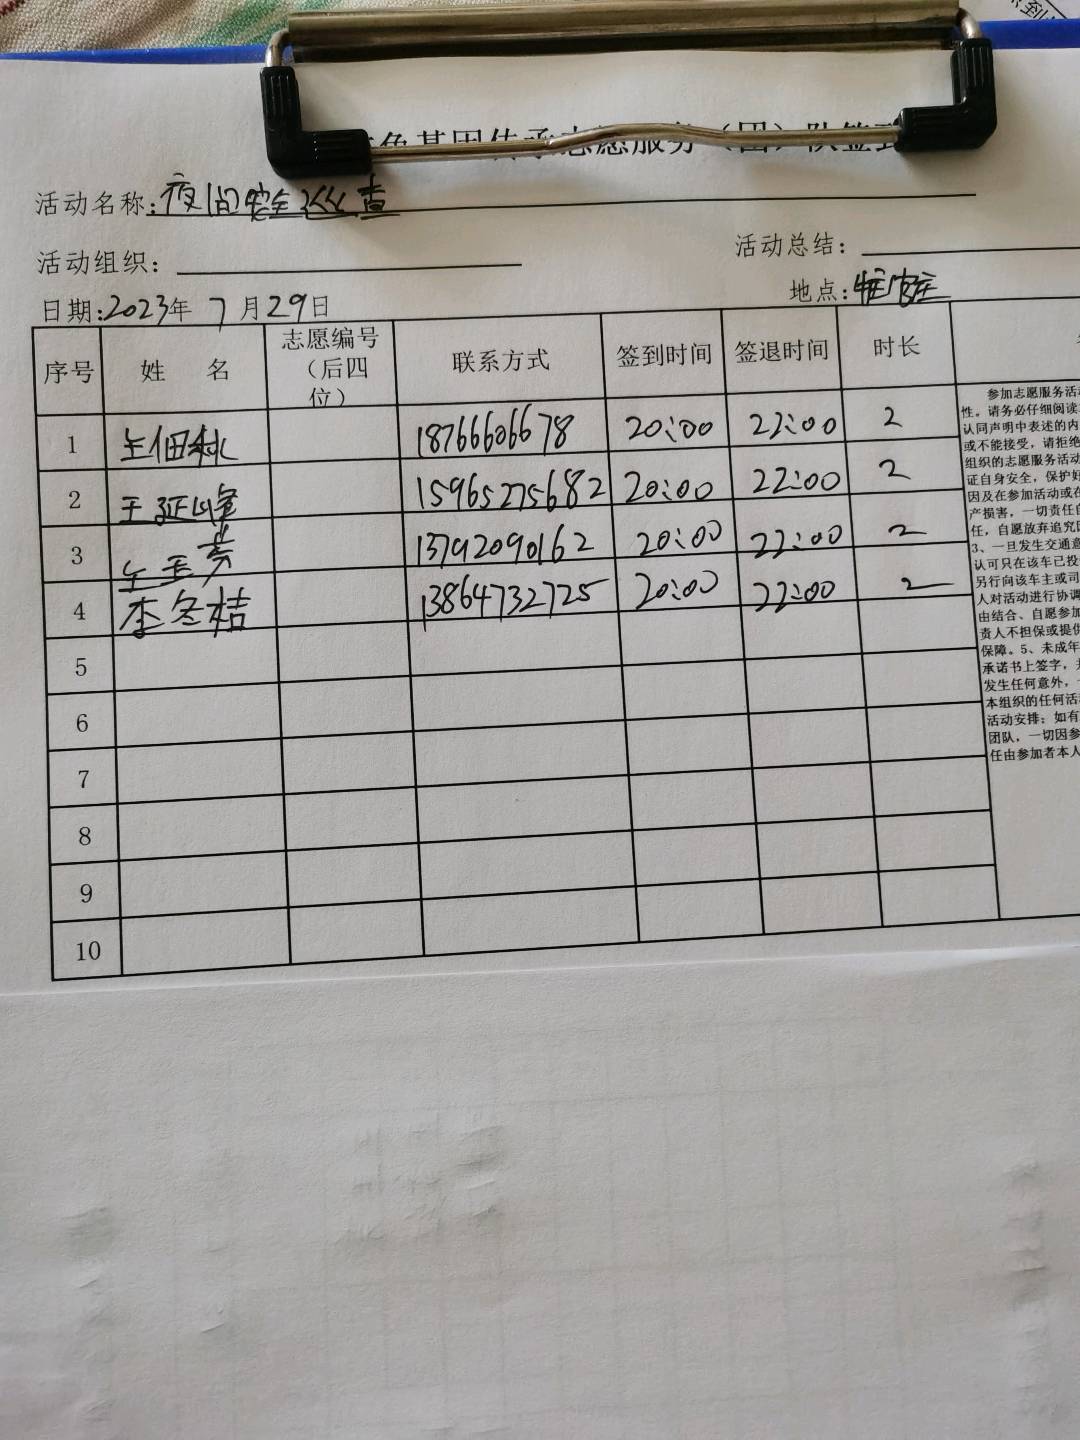 色基因传承志愿服务（团）队签到
活动名称：夜间安全巡查
活动组织：
活动总结：
日期：2023年 7月29日
地点：
序号 姓 名 志愿编号（后四位） 联系方式 签到时间 签退时间 时长
1 王佃秋 18766606678 20:00 22:00 2
2 王延峰 15965275682 20:00 22:00 2
3 王玉芳 13792090162 20:00 22:00 2
4 李冬桔 13864732725 20:00 22:00 2
5
6
7
8
9
10
参加志愿服务活
性。请务必仔细阅读
认同声明中表述的内
或不能接受，请拒绝
组织的志愿服务活动
证自身安全，保护好
因及在参加活动或在
产损害，一切责任自
任，自愿放弃追究
3、一旦发生交通意
认可只在该车已投
另行向该车主或司
人对活动进行协调
由结合、自愿参加
责人不担保或提供
保障。5、未成年
承诺书上签字，
发生任何意外，
本组织的任何活
活动安排；如有
团队，一切因参
任由参加者本人